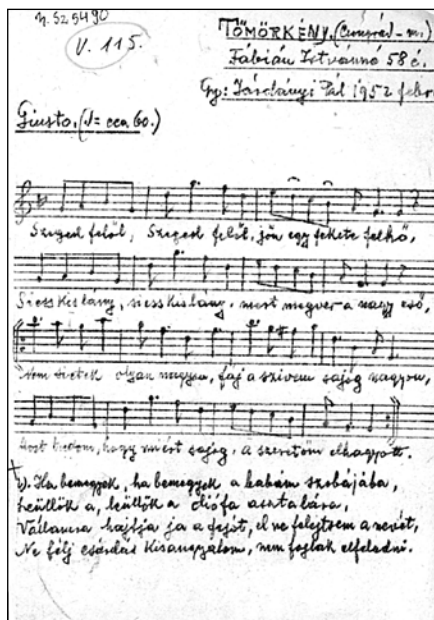 n. 525490
V. 115.
TÖMÖRKÉNY. (Csongrád-m.)
Fábián Istvánné 58 é.
Gy: Járdányi Pál 1952 febr.
Giusto. (♩= cca 60.)
Szeged felől, Szeged felől, jön egy fekete felhő,
Siess kislány, siess kislány, mert megver a nagy eső,
Nem sietek olyan nagyon, fáj a szívem sajog nagyon,
Most tudom, hogy miért sajog, a szeretőm elhagyott.
Ha bemegyek, ha bemegyek a babám szobájába,
Leülök a, leülök a diófa asztalára,
Vállamra hajtja ja a fejét, el ne felejtsem a nevét,
Ne félj csárdás kisangyalom, nem foglak elfeledni.